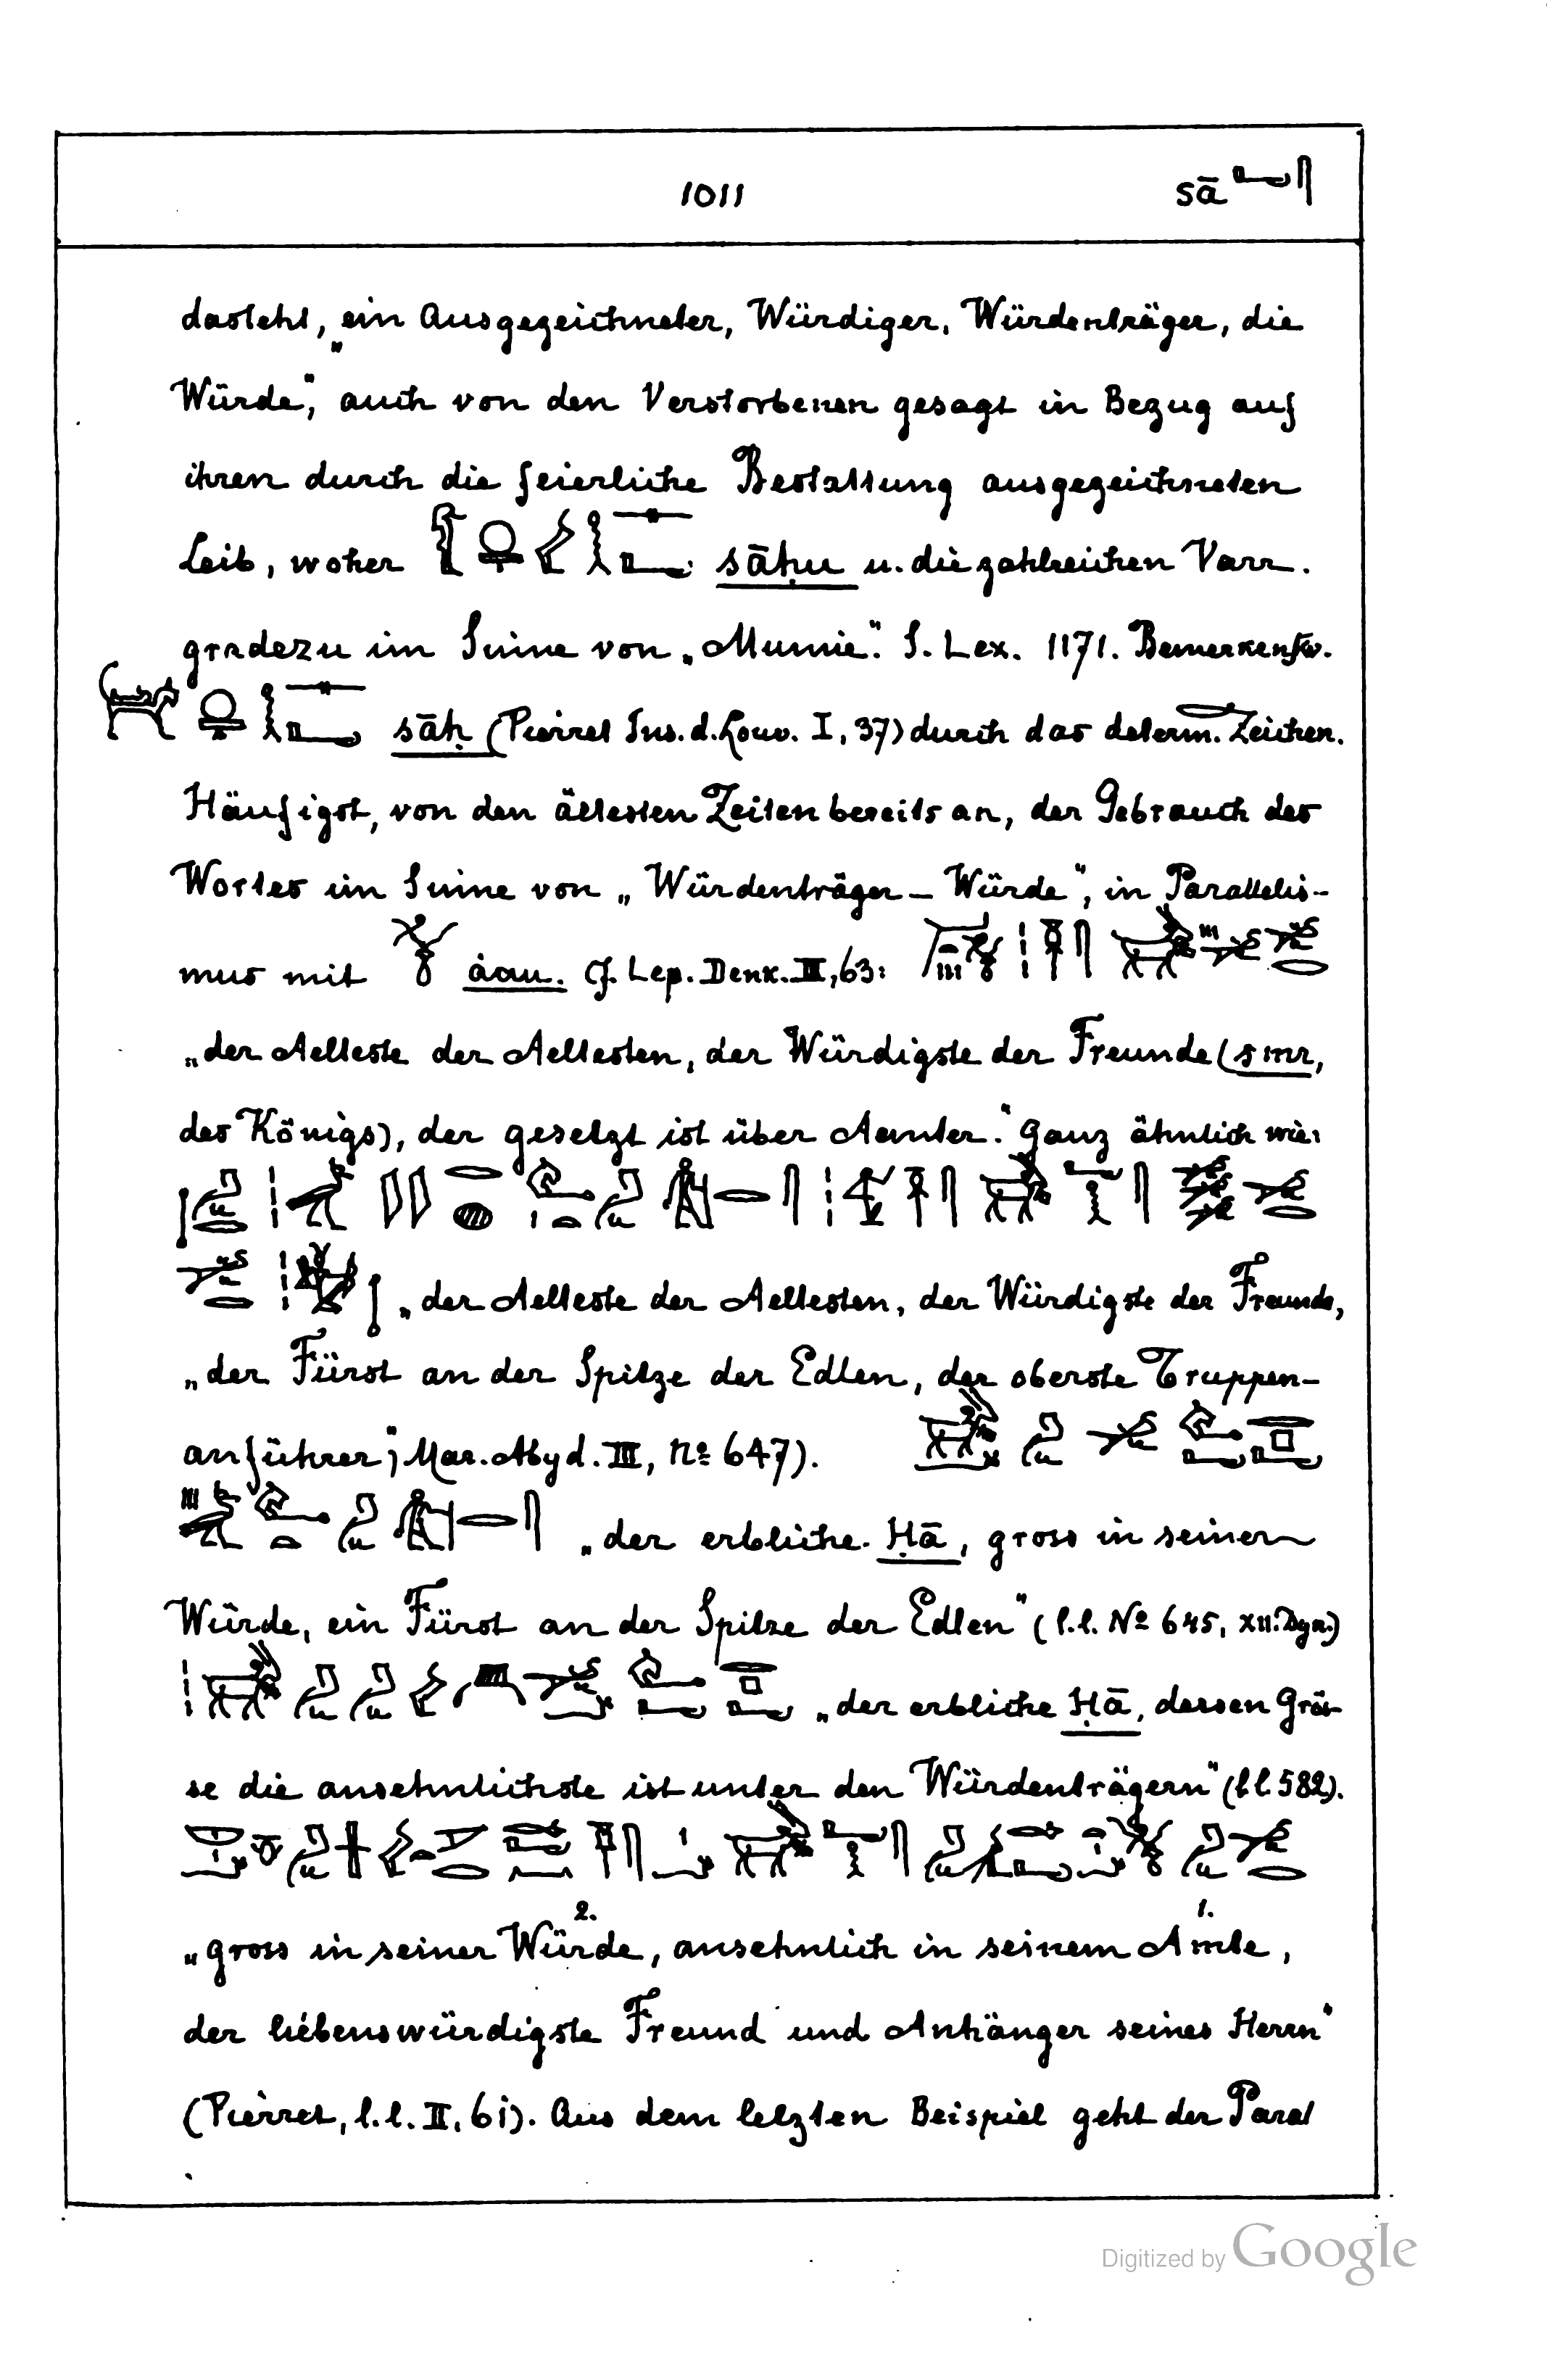 1011 sā
dasteht, „ein Ausgezeichneter, Würdiger, Würdenträger, die
Würde", auch von den Verstorbenen gesagt in Bezug auf
ihren durch die feierliche Bestattung ausgezeichneten
Leib, woher sāḥu u. die zahlreichen Varr.
gradezu im Sinne von „Mumie". S. Lex. 1171. Bemerkensw.
sāḥ (Pierret Ins. d. Louv. I, 37) durch das determ. Zeichen.
Häufigst, von den ältesten Zeiten bereits an, der Gebrauch des
Wortes im Sinne von „Würdenträger – Würde", in Parallelis-
mus mit åau. Cf. Lep. Denk. III, 63:
„der Aelteste der Aeltesten, der Würdigste der Freunde (smr,
des Königs), der gesetzt ist über Aemter." Ganz ähnlich wie:
„der Aelteste der Aeltesten, der Würdigste der Freunde,
„der Fürst an der Spitze der Edlen, der oberste Truppen-
anführer", Mar. Abyd. III, No 647).
„der erbliche Ḥā, gross in seiner
Würde, ein Fürst an der Spitze der Edlen" (l.l. No 645, XII. Dyn.)
„der erbliche Ḥā, dessen Grös-
se die ansehnlichste ist unter den Würdenträgern" (l.l. 582).
2. 1.
„gross in seiner Würde, ansehnlich in seinem Amte,
der liebenswürdigste Freund und Anhänger seines Herrn"
(Pierret, l.l. II, 61). Aus dem letzten Beispiel geht der Paral
Digitized by Google